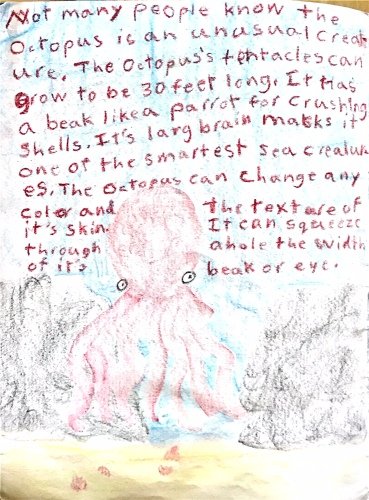 Not many people know the
Octopus is an unusual Creat
ure. The Octopus's tentacles can
grow to be 30 feet long. It Has
a beak like a parrot for Crushing
Shells. It's larg brain makks it
one of the smartest sea crealur
es. The Octopus can change any
color and the texture of
it's skin. It can squeeze
through a hole the width
of it's beak or eye.